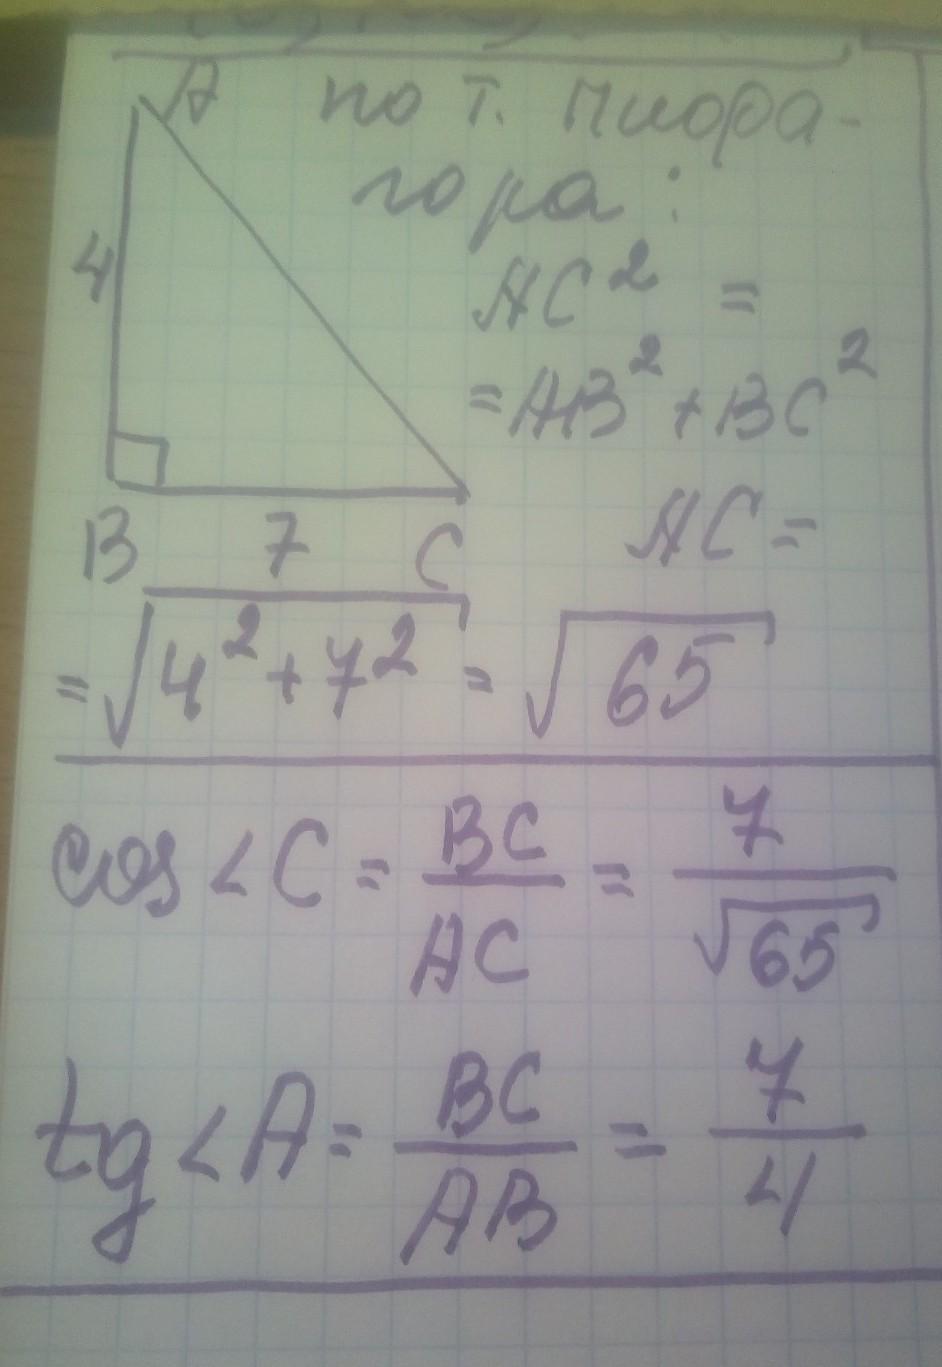 A по т. Пифора-
гора:
4
AC² =
= AB² + BC²
B 7 C
AC =
= √4² + 7² = √65
cos < C = BC/AC = 7/√65
tg < A = BC/AB = 7/4